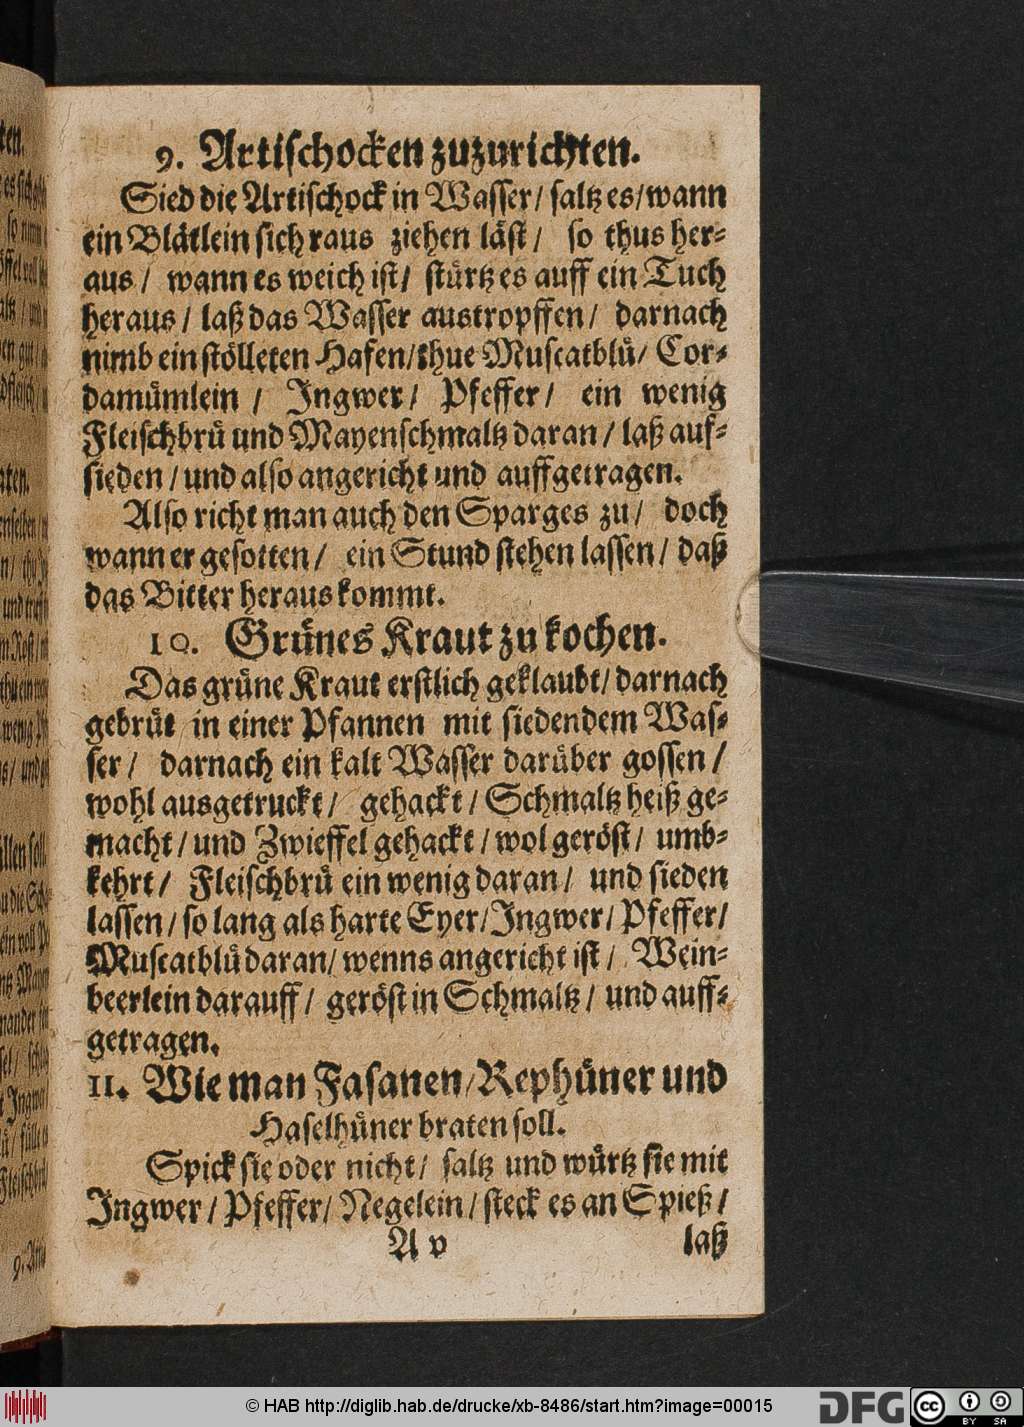 9. Artischocken zuzurichten.
Sied die Artischock in Wasser / saltz es / wann
ein Blätlein sich raus ziehen läst / so thus her-
aus / wann es weich ist / stürtz es auff ein Tuch
heraus / laß das Wasser austropffen / darnach
nimb ein stölleten Hafen / thue Muscatblü / Cor-
damümlein / Ingwer / Pfeffer / ein wenig
Fleischbrü und Mayenschmaltz daran / laß auf-
sieden / und also angericht und auffgetragen.
Also richt man auch den Sparges zu / doch
wann er gesotten / ein Stund stehen lassen / daß
das Bitter heraus kommt.
10. Grünes Kraut zu kochen.
Das grüne Kraut erstlich geklaubt / darnach
gebrüt in einer Pfannen mit siedendem Was-
ser / darnach ein kalt Wasser darüber gossen /
wohl ausgetruckt / gehackt / Schmaltz heiß ge-
macht / und Zwieffel gehackt / wol geröst / umb-
kehrt / Fleischbrü ein wenig daran / und sieden
lassen / so lang als harte Eyer / Ingwer / Pfeffer /
Muscatblü daran / wenns angericht ist / Wein-
beerlein darauff / geröst in Schmaltz / und auff-
getragen.
11. Wie man Fasanen / Rephüner und
Haselhüner braten soll.
Spick sie oder nicht / saltz und würtz sie mit
Ingwer / Pfeffer / Negelein / steck es an Spieß /
A v laß
© HAB http://diglib.hab.de/drucke/xb-8486/start.htm?image=00015
DFG
cc BY SA